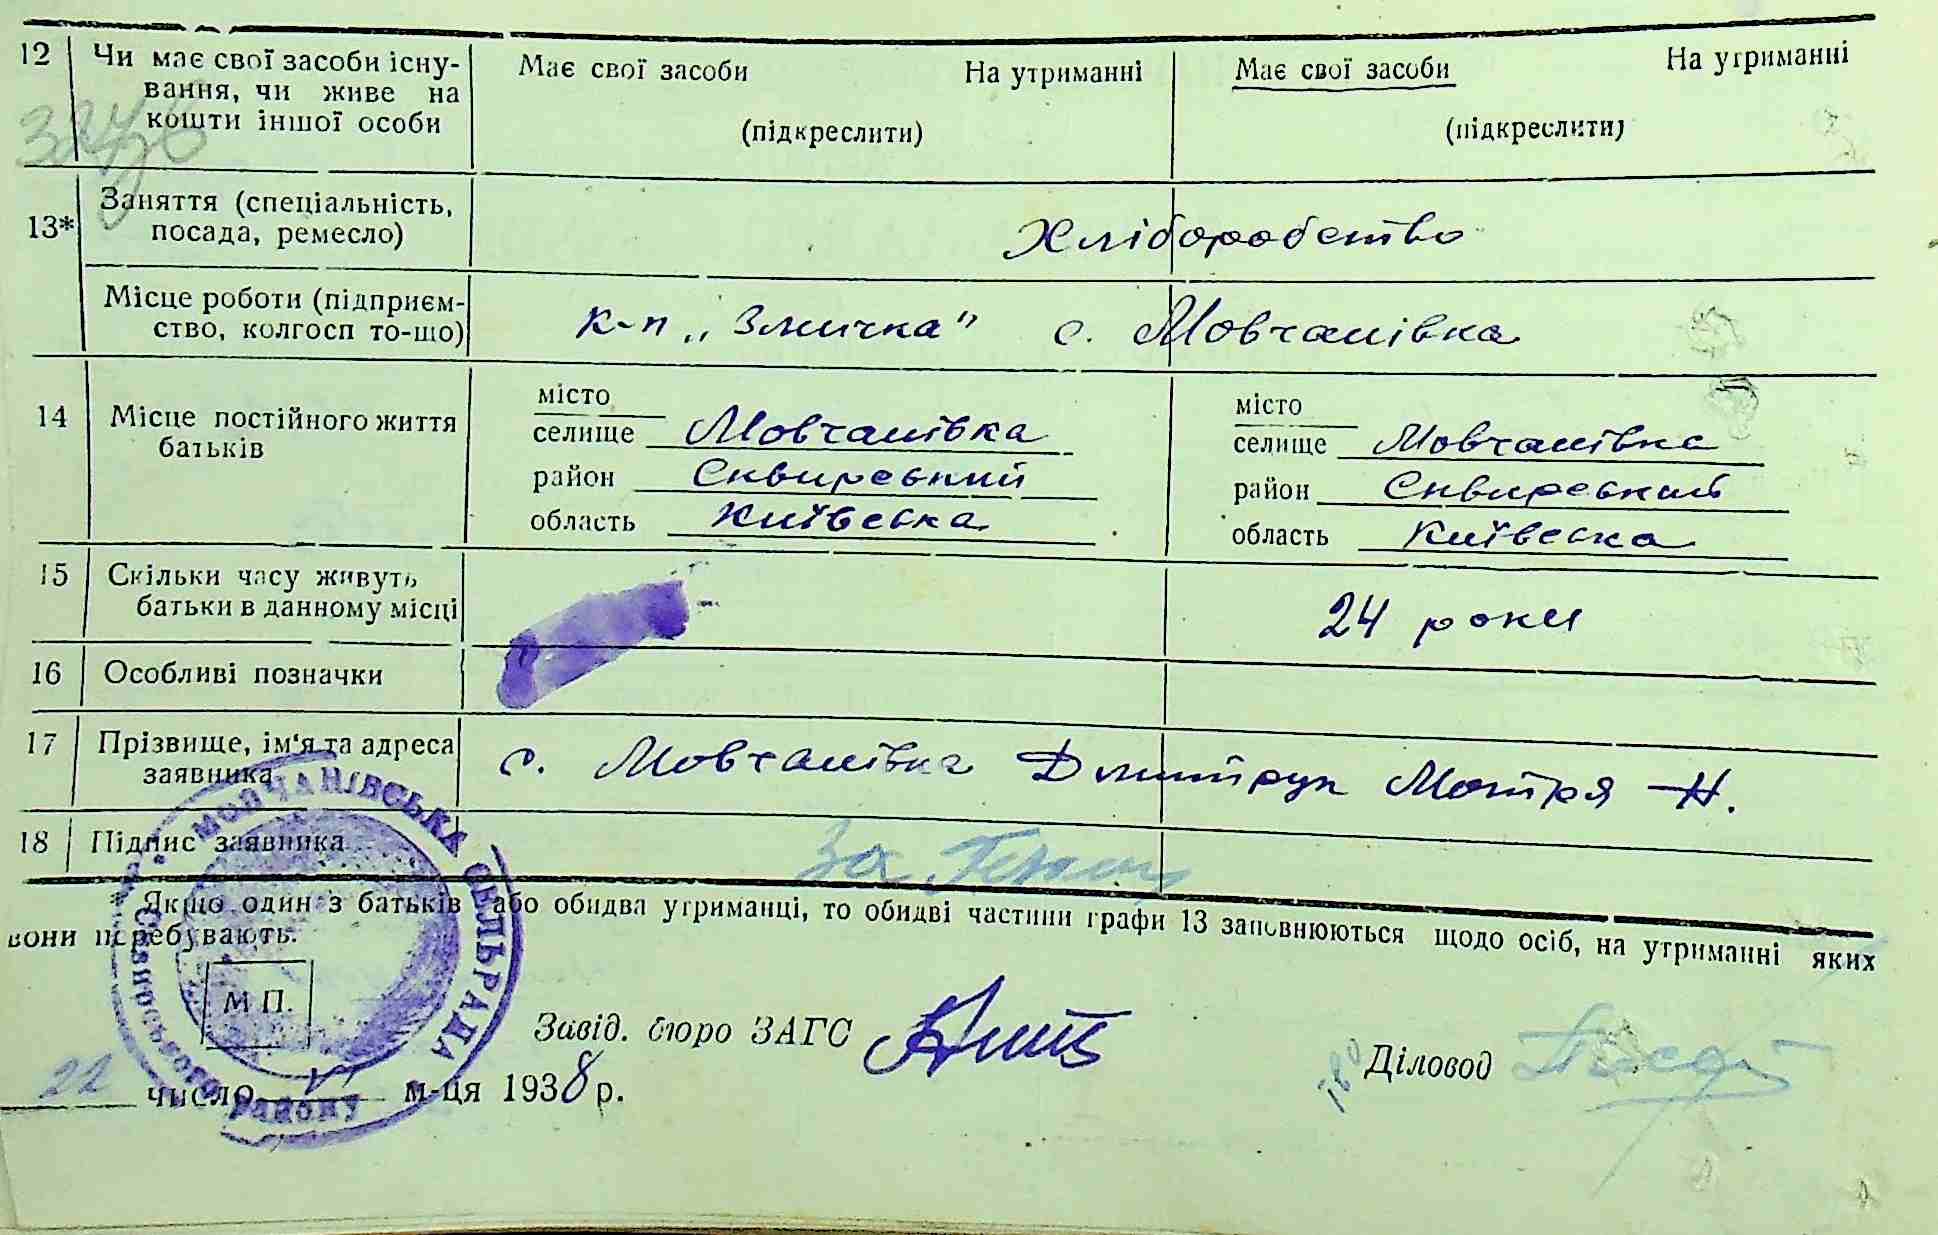 12 Чи має свої засоби існу- Має свої засоби На утриманні Має свої засоби На утриманні
вання, чи живе на
кошти іншої особи (підкреслити) (підкреслити)
13* Заняття (спеціальність,
посада, ремесло) Хліборобство
Місце роботи (підприєм-
ство, колгосп то-що) к-п „Змичка" с. Мовчанівка
14 Місце постійного життя
батьків
місто місто
селище Мовчанівка селище Мовчанівка
район Сквирський район Сквирський
область Київська область Київська
15 Скільки часу живуть
батьки в данному місці 24 роки
16 Особливі позначки
17 Прізвище, ім'я та адреса
заявника с. Мовчанівка Дмитрук Мотря Н.
18 Підпис заявника За
* Якщо один з батьків або обидва утриманці, то обидві частини графи 13 заповнюються щодо осіб, на утриманні яких
вони перебувають.
МОВЧАНІВСЬКА СІЛЬРАДА
Сквирського району
М П.
Завід. бюро ЗАГС
Діловод
22 число V м-ця 1938 р.